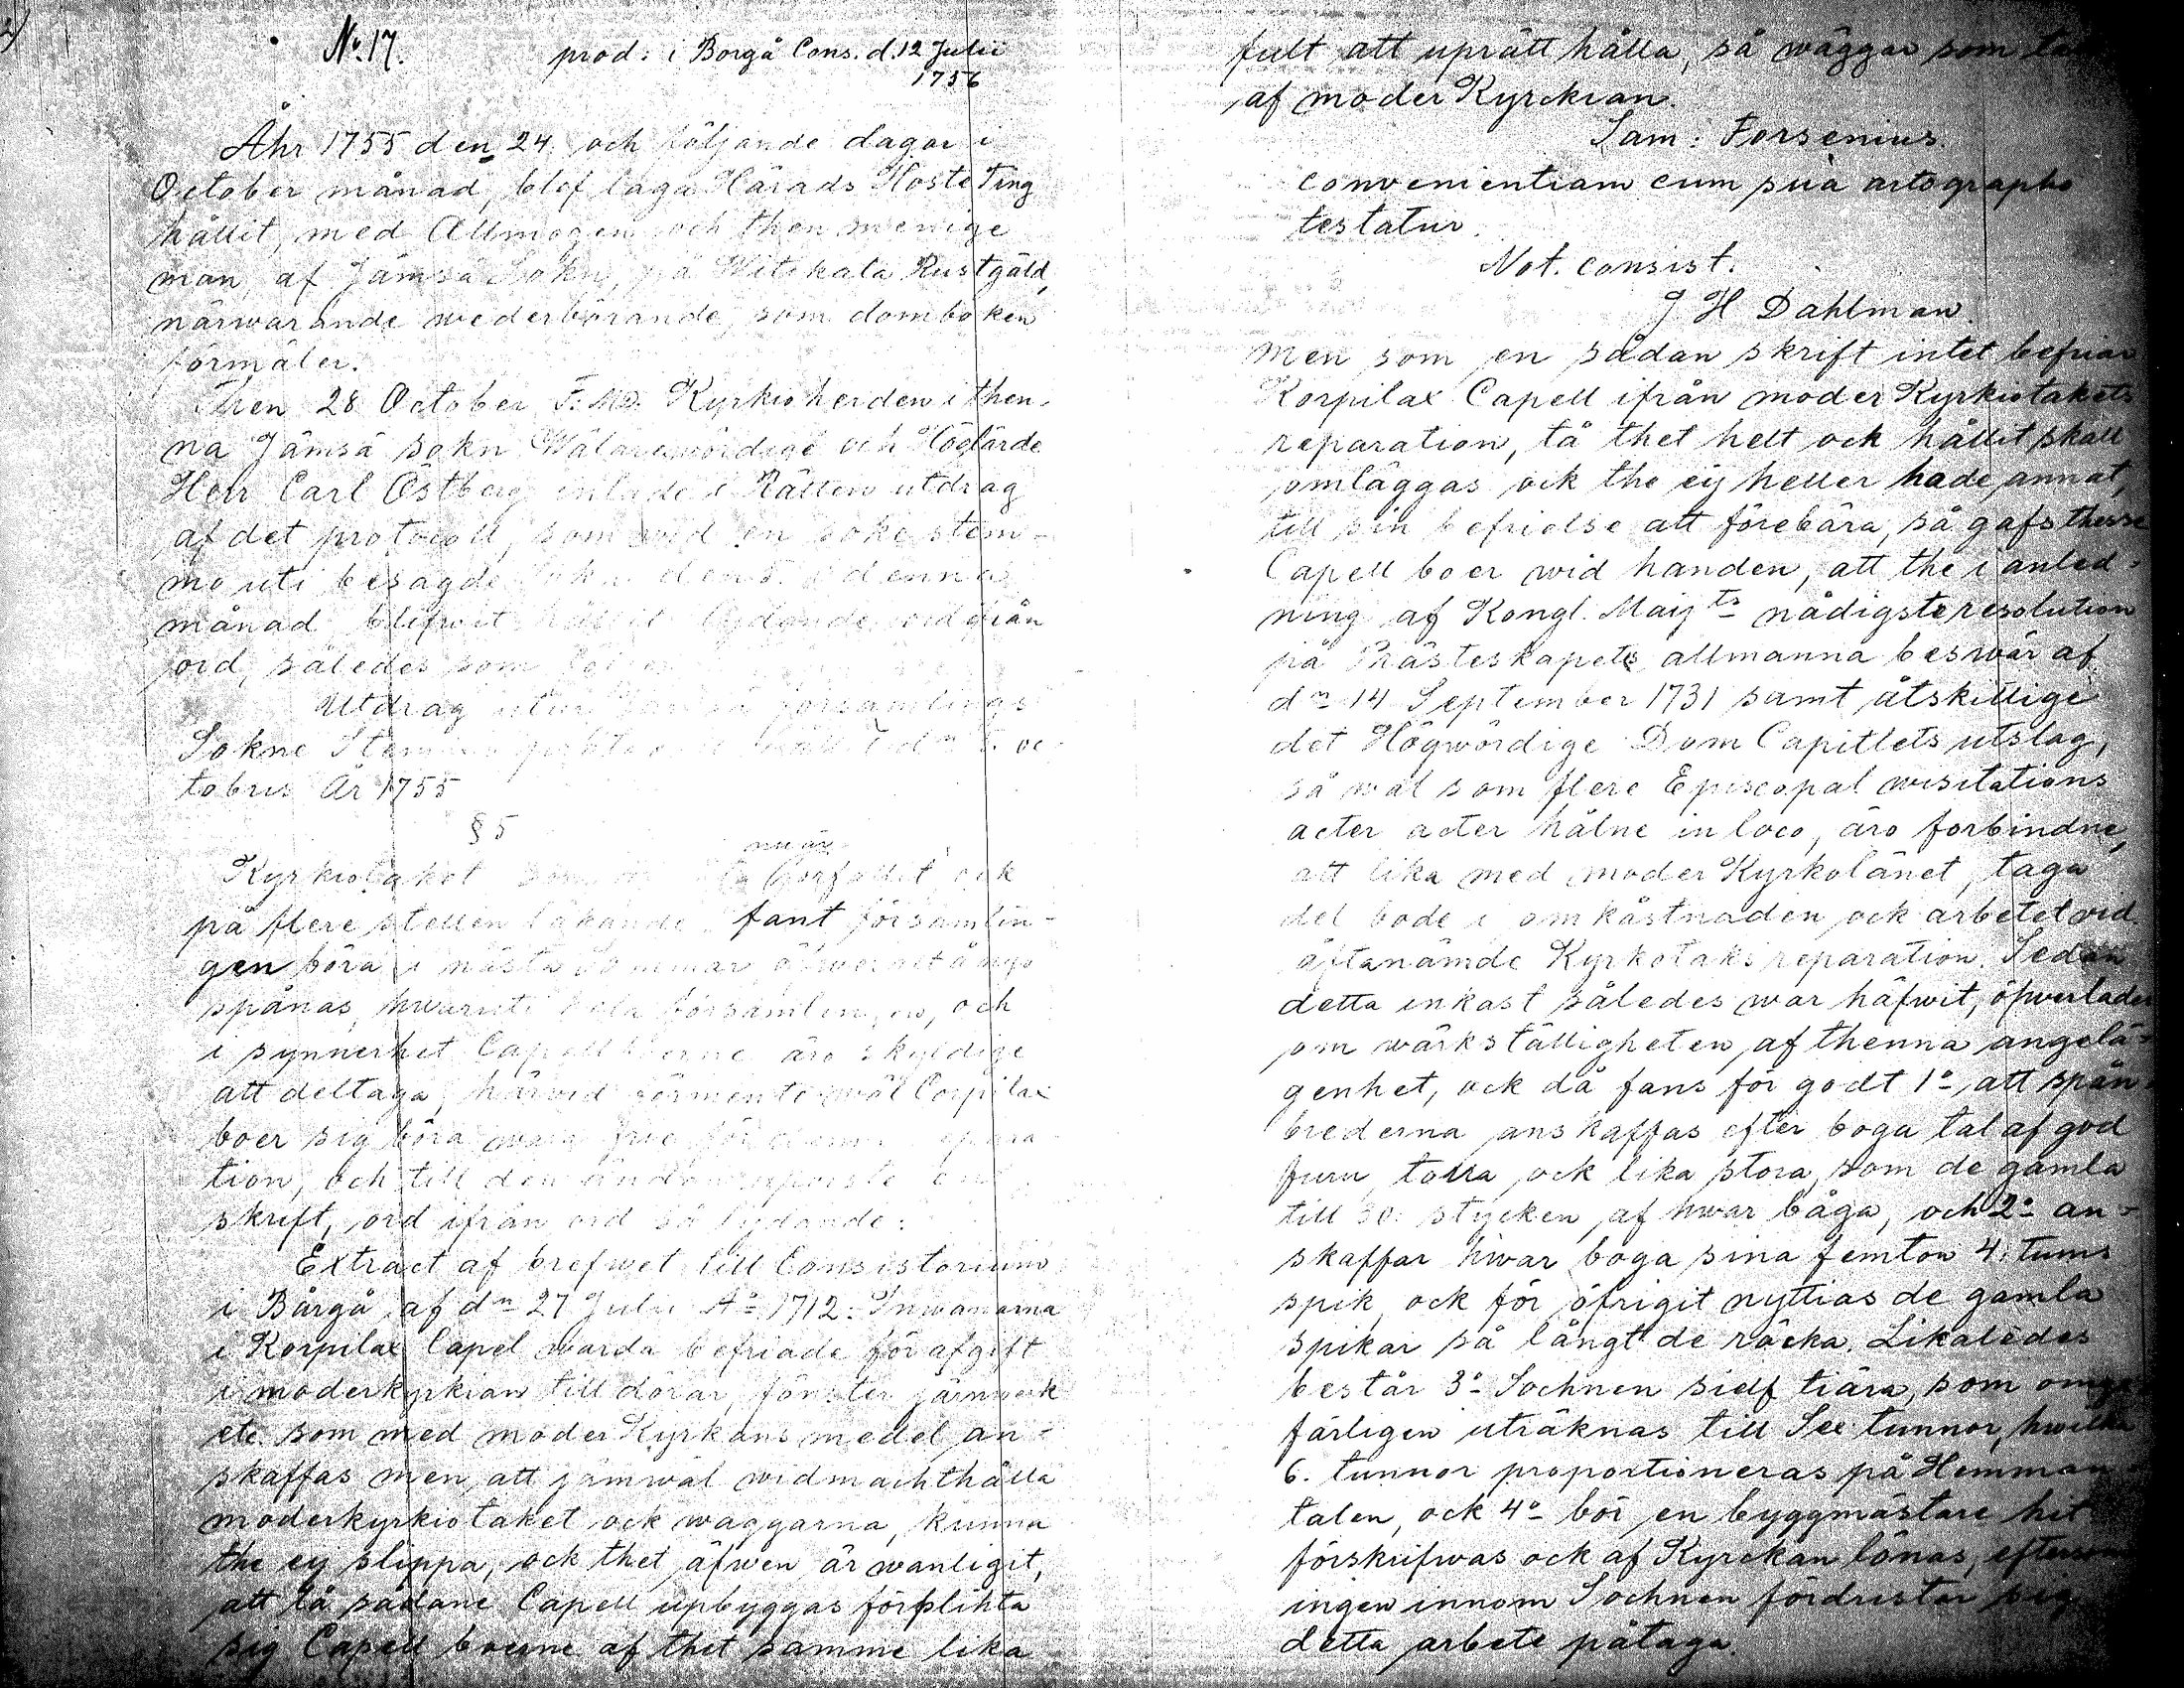 2)
No. 17. prod: i Borgå Cons. d. 12 Julii
1756
Åhr 1755 den 24 och följande dagar i
October månad, blef laga Härads Höste Ting
hållit, med Allmogen och then menige
man, af Jämsä Sokn, på Witikala Rustgåld,
närwarande wederbörande, som domboken
förmäler.
Then 28 October Kyrkioherden i then-
na Jämsä sokn Wälärewördige och Höglärde
Herr Carl Östberg inlade i Rätten utdrag
af det protocoll, som wid en soknestem-
mo uti besagde Sokn den 5. i denna
månad blifwit hållit lydande ord ifrån
ord, således som
Utdrag utur församlings
Sokne Stemmo dn 5. oc-
tobris År 1755
§ 5
nu är
Kyrkiotaket som förfallit ock
på flere ställen läkande fant församlin-
gen böra i nästa Sommar
spånas, hwaruti hela församlingen, och
i synnerhet Capellboerne äro skyldige
att deltaga, härwid förmente wäl Corpilax
boer sig böra wara frie för denna repara-
tion, och till den ändan en
skrift, ord ifrån ord så lydande:
Extract af brefwet till Consistorium
i Bårgå af dn 27 Julii Ao 1712: Inwånarna
i Korpilax Capel warda befriade för afgift
i moderkyrkian till dörar, fönster järnwerk
etc. som med moder Kyrkans medel an-
skaffas men att jämwäl widmachthålla
moderkyrkiotaket ock wäggarna, kunna
the ey slippa, ock thet äfwen är wanligit,
att tå sådane Capell upbyggas förplikta
sig Capell boerne af thet samme lika
fult att uprätt hålla, så wäggar som
af moder Kyrckian.
Sam: Forsenius.
Convenientiam cum suà artographo
testatur.
Not. consist.
J H Dahlman.
Men som en sådan skrift intet befriar
Korpilax Capell ifrån moder Kyrkiotakets
reparation, tå thet helt ock hållit skall
omläggas ock the ej heller hade annat,
till sin befrielse att förebära, så gafs thesse
Capell boer wid handen, att the i anled-
ning af Kongl. Maijts nådigste resolution
på Prästeskapets allmänna beswär af
dn 14 September 1731 samt åtskillige
det Högwördige Dom Capitlets utslag,
så wäl som flere Episcopal wisitations
acter acter hålne in loco, äro forbindne,
att lika med moder Kyrkolänet, taga
del bode i omkåstnaden ock arbetet wid
äftanämde Kyrkotaks reparation. Sedan
detta inkast således war häfwit, öfwerlades
om wärkställigheten af thenna angelä-
genhet, ock då fans för godt 1o att spån-
brederna anskaffas efter boga tal af god
furu, torra ock lika stora, som de gamla
till 30 stycken af hwar båga, och 2o an-
skaffar hwar boga sina femton 4: tums
spik, ock för öfrigit nyttias de gamla
spikar så långt de räcka. Likaledes
består 3o Sochnen sielf tiära, som
färligen uträknas till Sex tunnor, hwilka
6. tunnor proportioneras på Hemman
talen, ock 4o bör en byggmästare hit
förskrifwas ock af Kyrckan lönas, eftersom
ingen innom Sochnen fördristar sig
detta arbete påtaga.